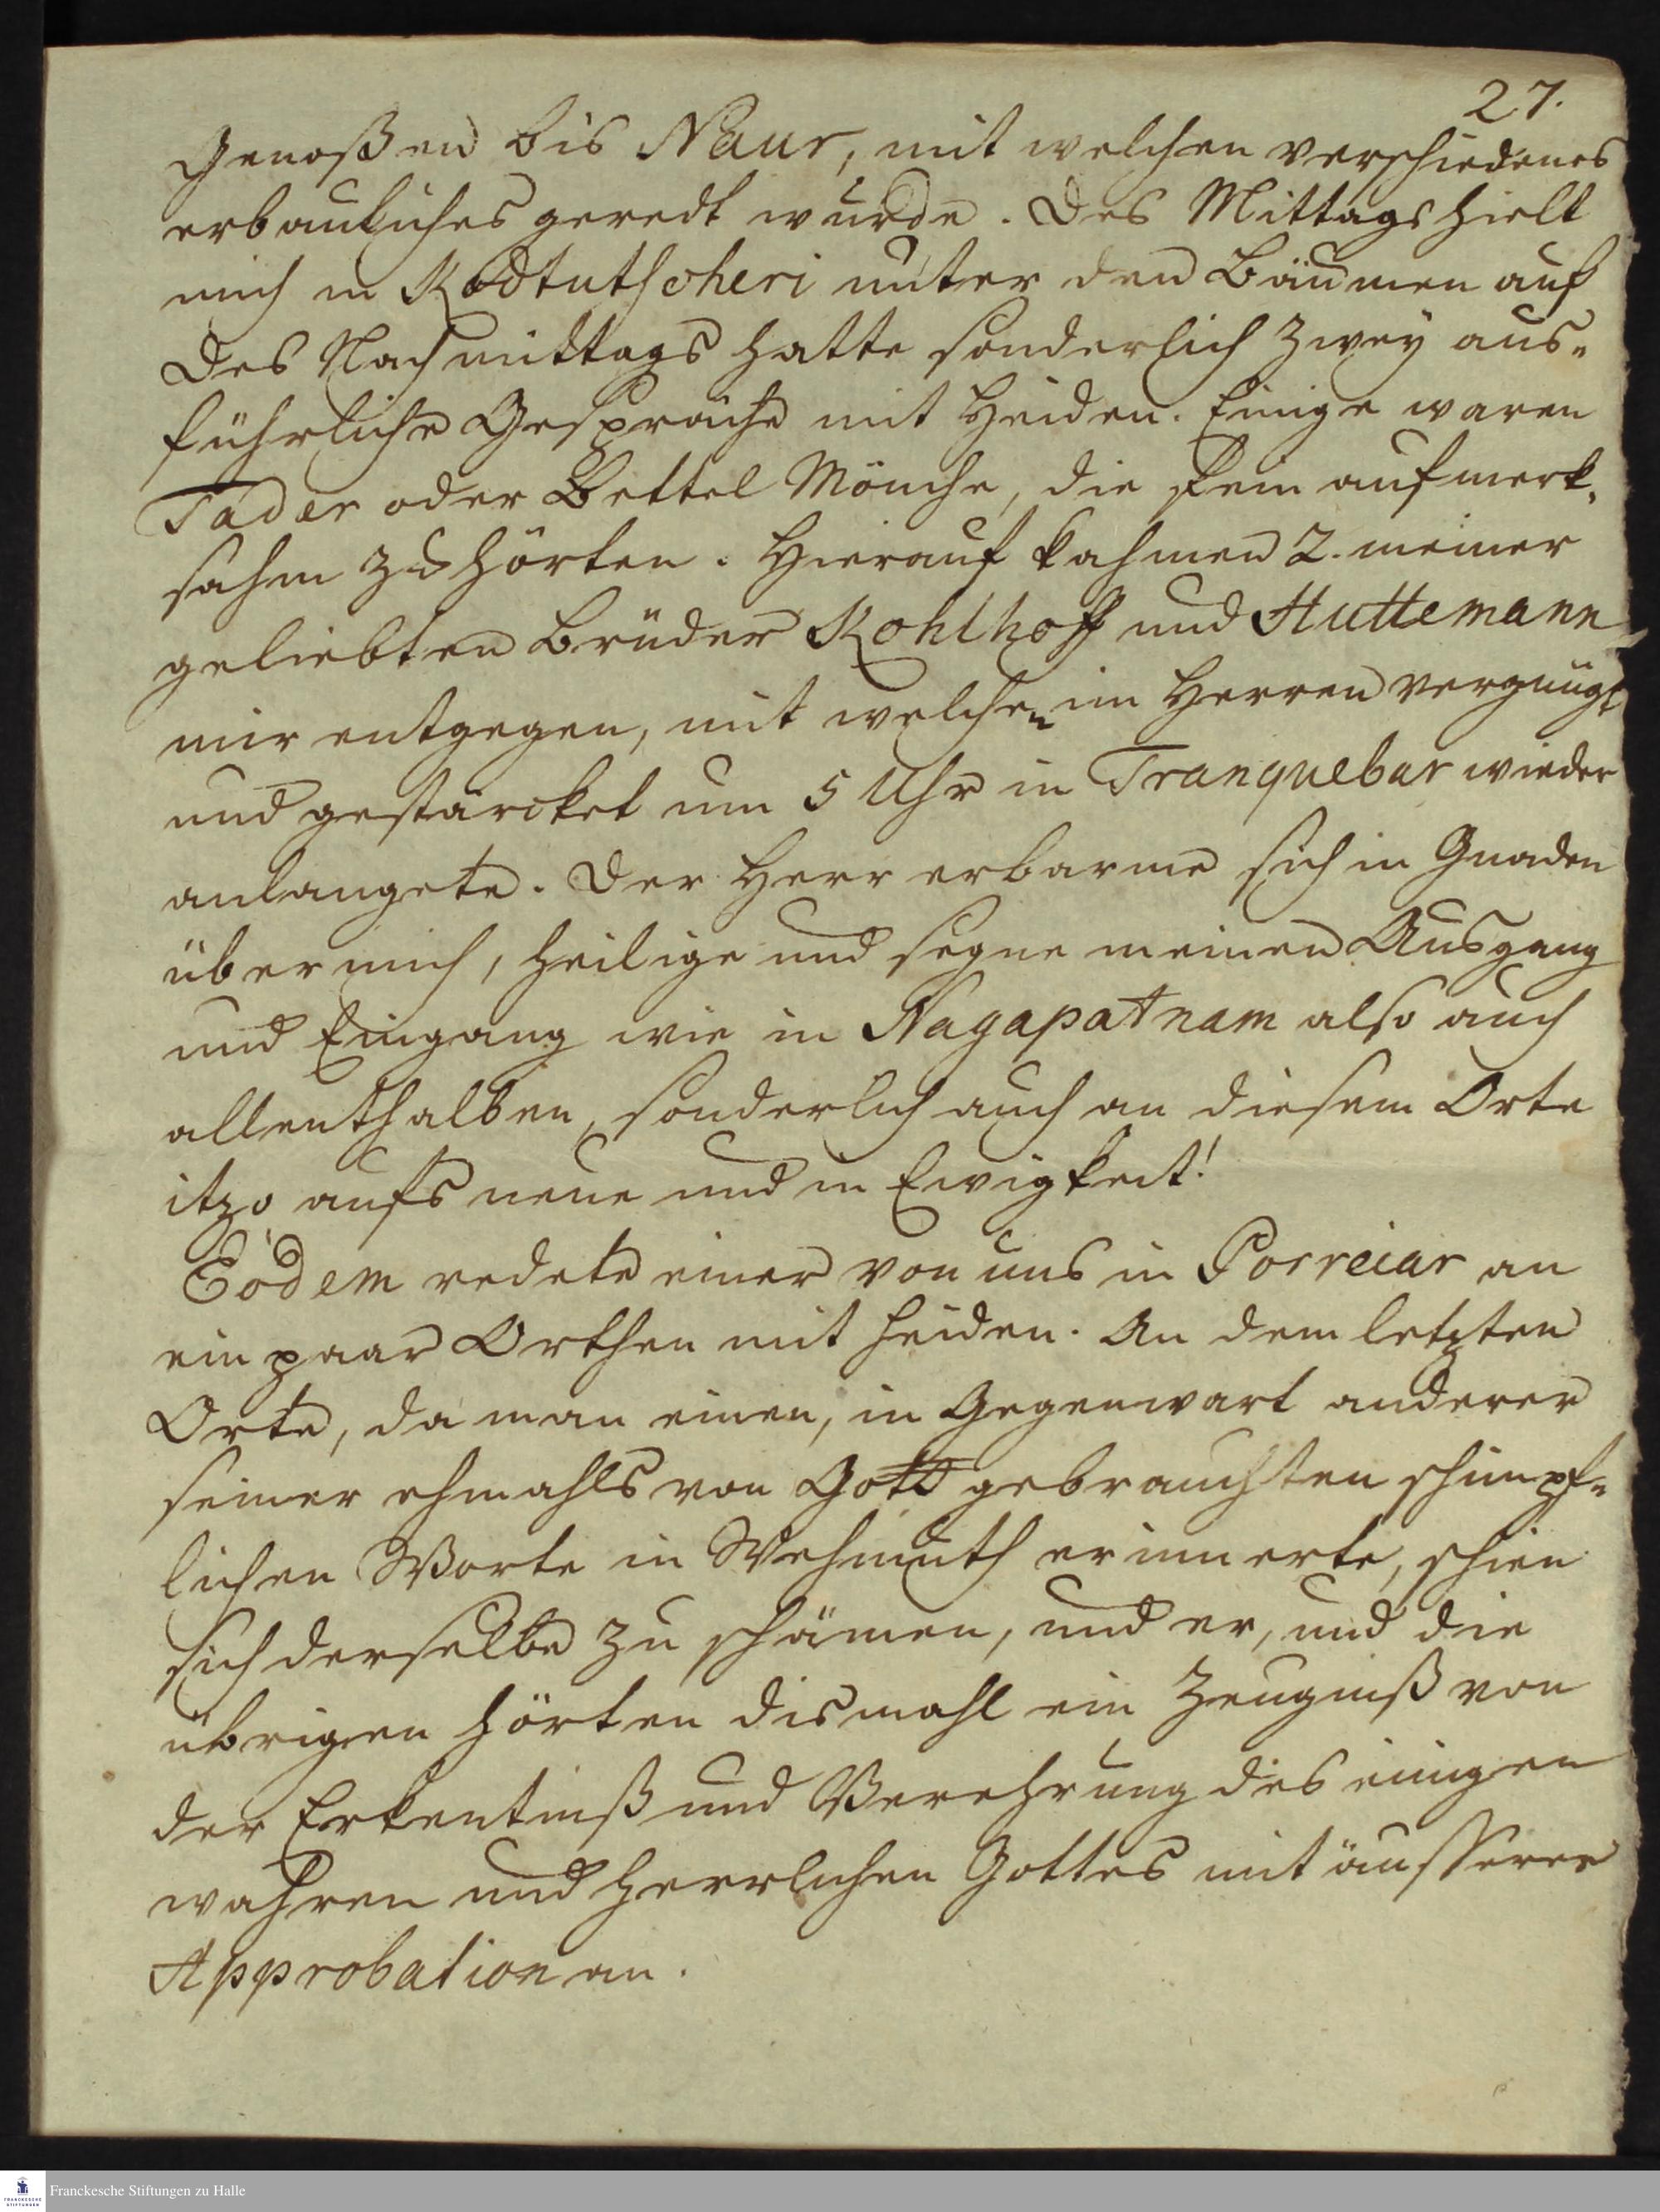 27.
Genoßen bis Naur, mit welchen verschiedenes
erbauliches geredt wurde. Des Mittags hielt
mich in Kodtutscheri unter den Bäumen auf
Des Nachmittags hatte sonderlich zwey aus-
führliche Gespräche mit Heiden. Einige waren
Tader oder Bettel Mönche, die fein aufmerk-
sahm zuhörten. Hierauf kahmen 2. meiner
geliebten Brüder Kohlhoff und Huttemann
mir entgegen, mit welchen im Herren vergnügt
und gestärcket um 5 Uhr in Tranquebar wieder
anlangete. Der Herr erbarme sich in Gnaden
über mich, heilige und segne meinen Ausgang
und Eingang wie in Nagapatnam also auch
allenthalben, sonderlich auch an diesem Orte
itzo aufs neue und in Ewigkeit!
Eodem redete einer von uns in Porreiar an
ein paar Orthen mit Heiden. An dem letzten
Orte, da man einen, in Gegenwart anderer
seiner ehmahls von Gott gebrauchten schimpf-
lichen Worte in Wehmuth erinnerte, schien
sich derselbe zu schämen, und er, und die
übrigen hörten dismahl ein Zeugniß von
der Erkentniß und Verehrung des einigen
wahren und herrlichen Gottes mit äusserer
Approbation an.
Franckesche Stiftungen zu Halle
FRANCKESCHE
STIFTUNGEN